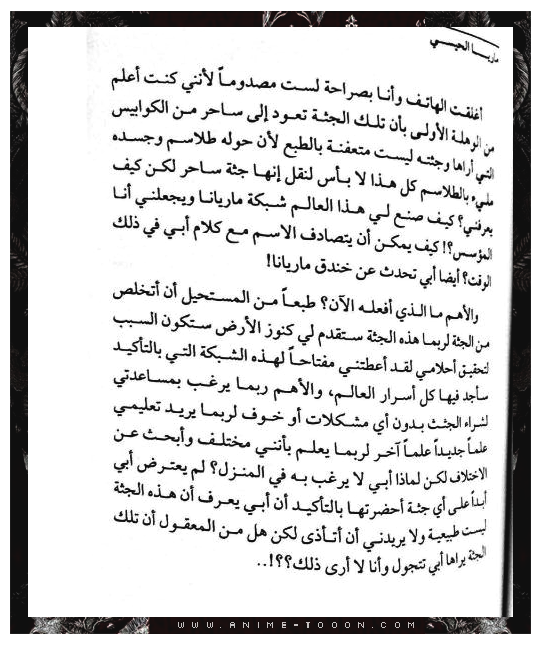 ماريا الحيسي
أغلقت الهاتف وأنا بصراحة لست مصدوماً لأنني كنت أعلم
من الوهلة الأولى بأن تلك الجثة تعود إلى ساحر من الكوابيس
التي أراها وجثته ليست متعفنة بالطبع لأن حوله طلاسم وجسده
مليء بالطلاسم كل هذا لا بأس لنقل إنها جثة ساحر لكن كيف
يعرفني؟ كيف صنع لي هذا العالم شبكة ماريانا ويجعلني أنا
المؤسس؟! كيف يمكن أن يتصادف الاسم مع كلام أبي في ذلك
الوقت؟ أيضا أبي تحدث عن خندق ماريانا!
والأهم ما الذي أفعله الآن؟ طبعاً من المستحيل أن أتخلص
من الجثة لربما هذه الجثة ستقدم لي كنوز الأرض ستكون السبب
لتحقيق أحلامي لقد أعطتني مفتاحاً لهذه الشبكة التي بالتأكيد
سأجد فيها كل أسرار العالم، والأهم ربما يرغب بمساعدتي
لشراء الجثث بدون أي مشكلات أو خوف لربما يريد تعليمي
علماً جديداً علماً آخر لربما يعلم بأنني مختلف وأبحث عن
الاختلاف لكن لماذا أبي لا يرغب به في المنزل؟ لم يعترض أبي
أبداً على أي جثة أحضرتها بالتأكيد أن أبي يعرف أن هذه الجثة
ليست طبيعية ولا يريدني أن أتأذى لكن هل من المعقول أن تلك
الجثة يراها أبي تتجول وأنا لا أرى ذلك؟؟!..
WWW.ANIME-TOOON.COM